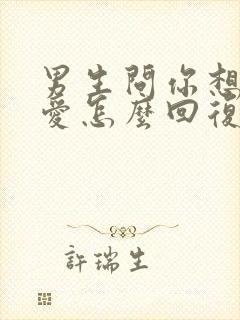 男生問你想
愛怎麼回復
許瑞生